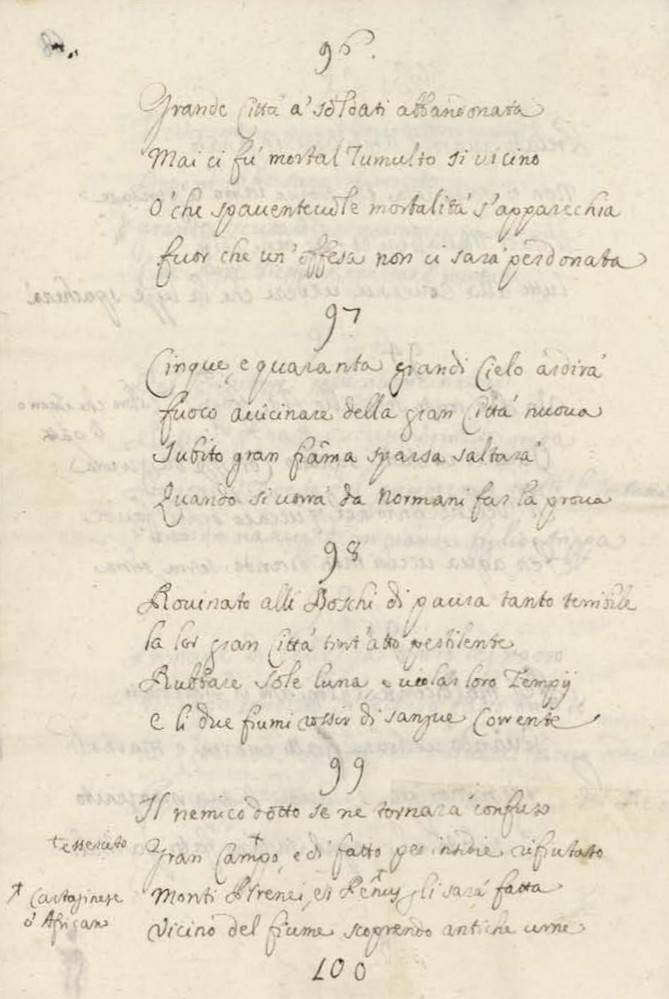 96.
Grande Città a' soldati abbandonata
Mai ci fu' mortal Tumulto si vicino
O' che spauenteuole mortalità s'apparechia
fuor che un' offesa non ci sarà perdonata
97
Cinque, e quaranta gradi Cielo ardirà
fuoco auicinare della gran Città nuoua
Subito gran fiama sparsa saltarà
Quando si uorrà da Normani far la proua
98
Rouinato alli Boschi di paura tanto terribile
la lor gran Città pestilente
Rubbare Sole luna e uiolar loro Tempij
E li due fiumi rossir di sangue Corrente
99
Il nemico dotto se ne tornarà confuso
+essercito
Gran Campo+, e di fatto per insidie rifiutato
+ Cartaginese
ó African
Monti Pirenei, et gli sarà fatta
Vicino del fiume scoprendo antiche urne
100